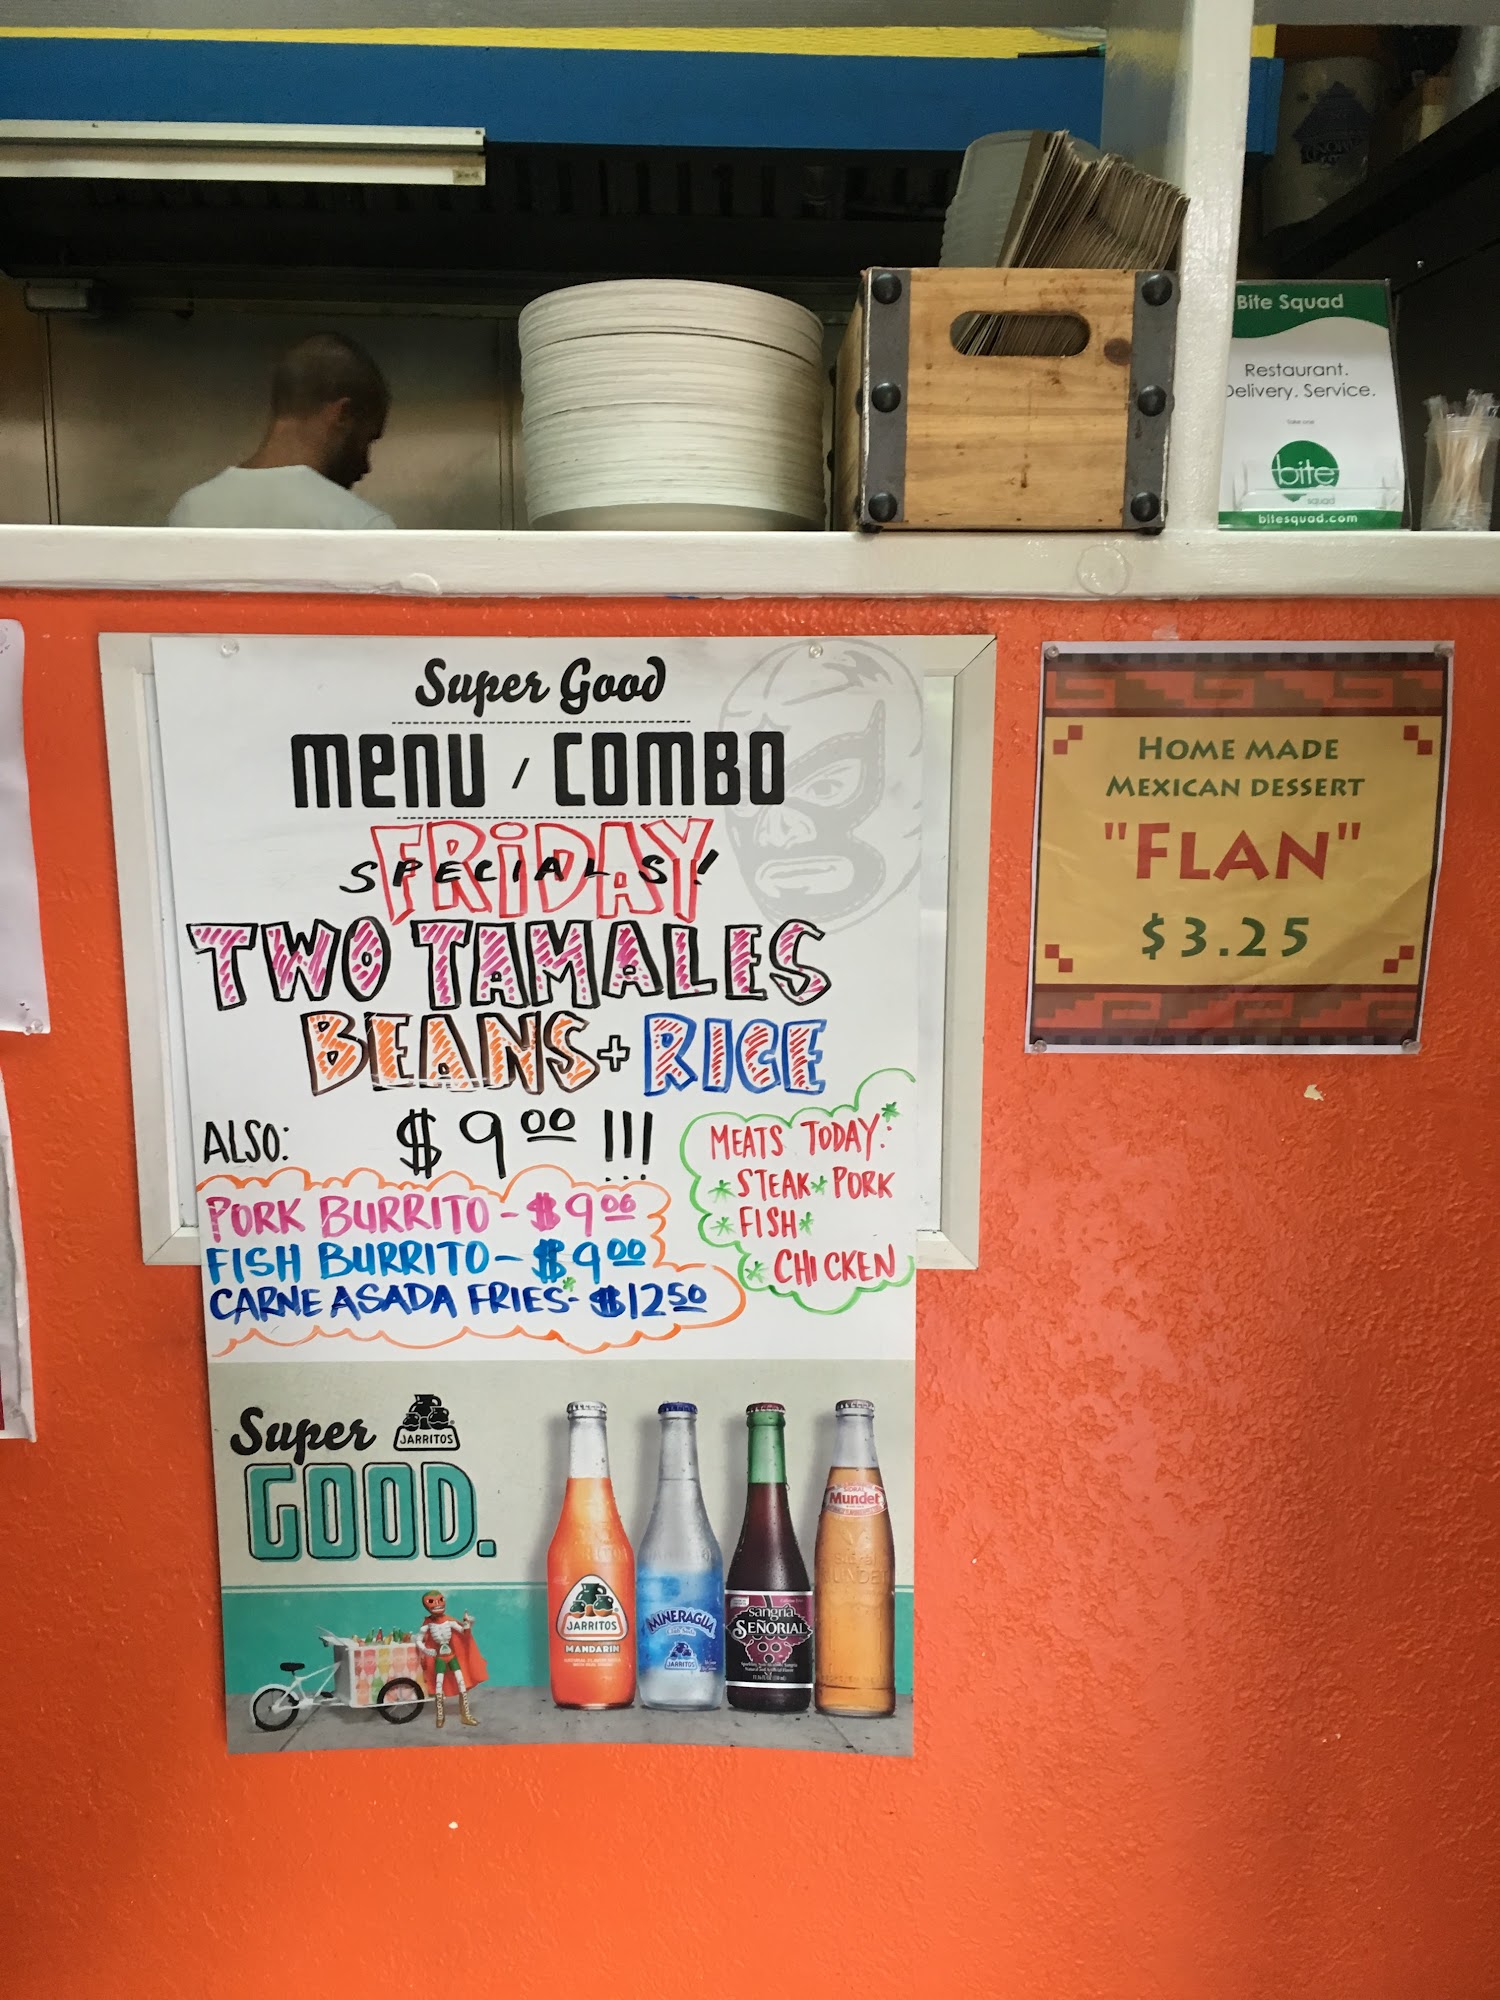 Bite Squad
Restaurant.
Delivery. Service.
Take one
bite
squad
bitesquad.com
Super Good
MENU / COMBO
FRiDAY
SPECIALS!
TWO TAMALES
BEANS + RICE
ALSO: $9.00 !!!
PORK BURRITO - $9.00
FISH BURRITO - $9.00
CARNE ASADA FRIES* - $12.50
MEATS TODAY:*
* STEAK * PORK
* FISH *
* CHICKEN
Super JARRITOS
GOOD.
JARRITOS
MANDARIN
MINERAGUA
Club Soda
JARRITOS
Sangría
SEÑORIAL
Mundet
HOME MADE
MEXICAN DESSERT
"FLAN"
$3.25